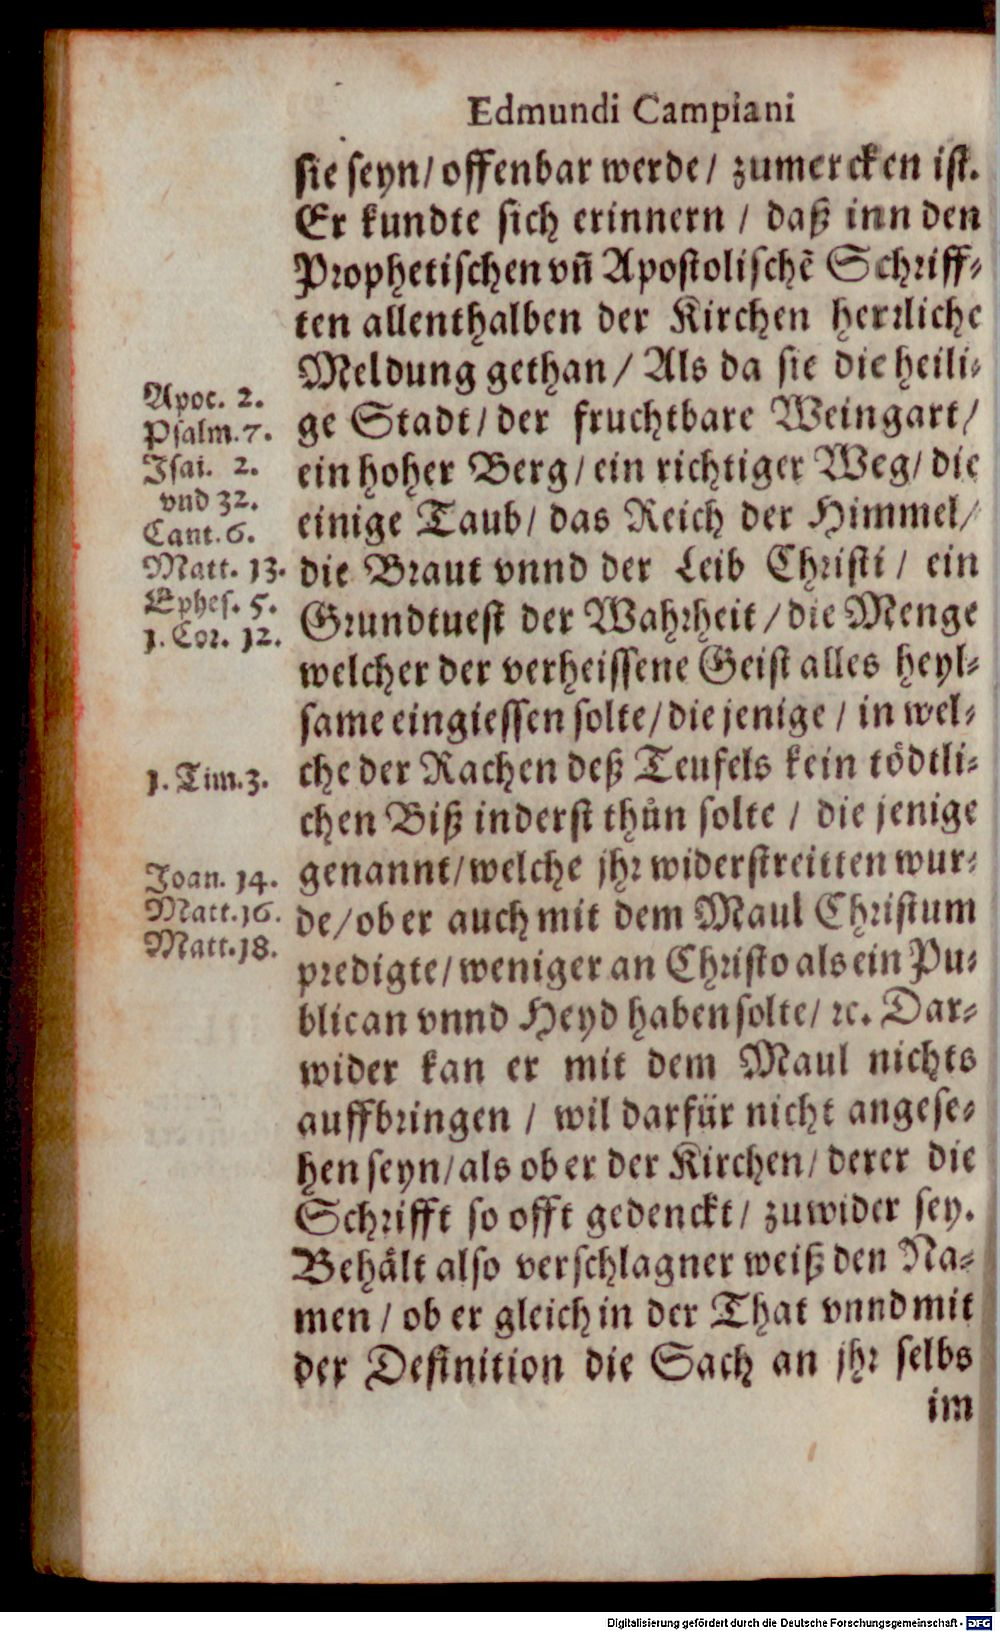 Edmundi Campiani
sie seyn/ offenbar werde/ zumercken ist.
Er kundte sich erinnern / daß inn den
Prophetischen vñ Apostolischẽ Schriff⸗
ten allenthalben der Kirchen herrliche
Meldung gethan/ Als da sie die heili⸗
ge Stadt/ der fruchtbare Weingart/
ein hoher Berg/ ein richtiger Weg/ die
einige Taub/ das Reich der Himmel/
die Braut vnnd der Leib Christi/ ein
Grundtuest der Wahrheit/ die Menge
welcher der verheissene Geist alles heyl⸗
same eingiessen solte/ die jenige / in wel⸗
che der Rachen deß Teufels kein tödtli⸗
chen Biß inderst thůn solte / die jenige
genannt/ welche jhr widerstreitten wur⸗
de/ ob er auch mit dem Maul Christum
predigte/ weniger an Christo als ein Pu⸗
blican vnnd Heyd haben solte/ ꝛc. Dar⸗
wider kan er mit dem Maul nichts
auffbringen / wil darfür nicht angese⸗
hen seyn/ als ob er der Kirchen/ derer die
Schrifft so offt gedenckt/ zuwider sey.
Behält also verschlagner weiß den Na⸗
men / ob er gleich in der That vnnd mit
der Definition die Sach an jhr selbs
im
Apoc. 2.
Psalm. 7.
Isai. 2.
vnd 32.
Cant. 6.
Matt. 13.
Ephes. 5.
1. Cor. 12.
1. Tim. 3.
Joan. 14.
Matt. 16.
Matt. 18.
Digitalisierung gefördert durch die Deutsche Forschungsgemeinschaft - DFG